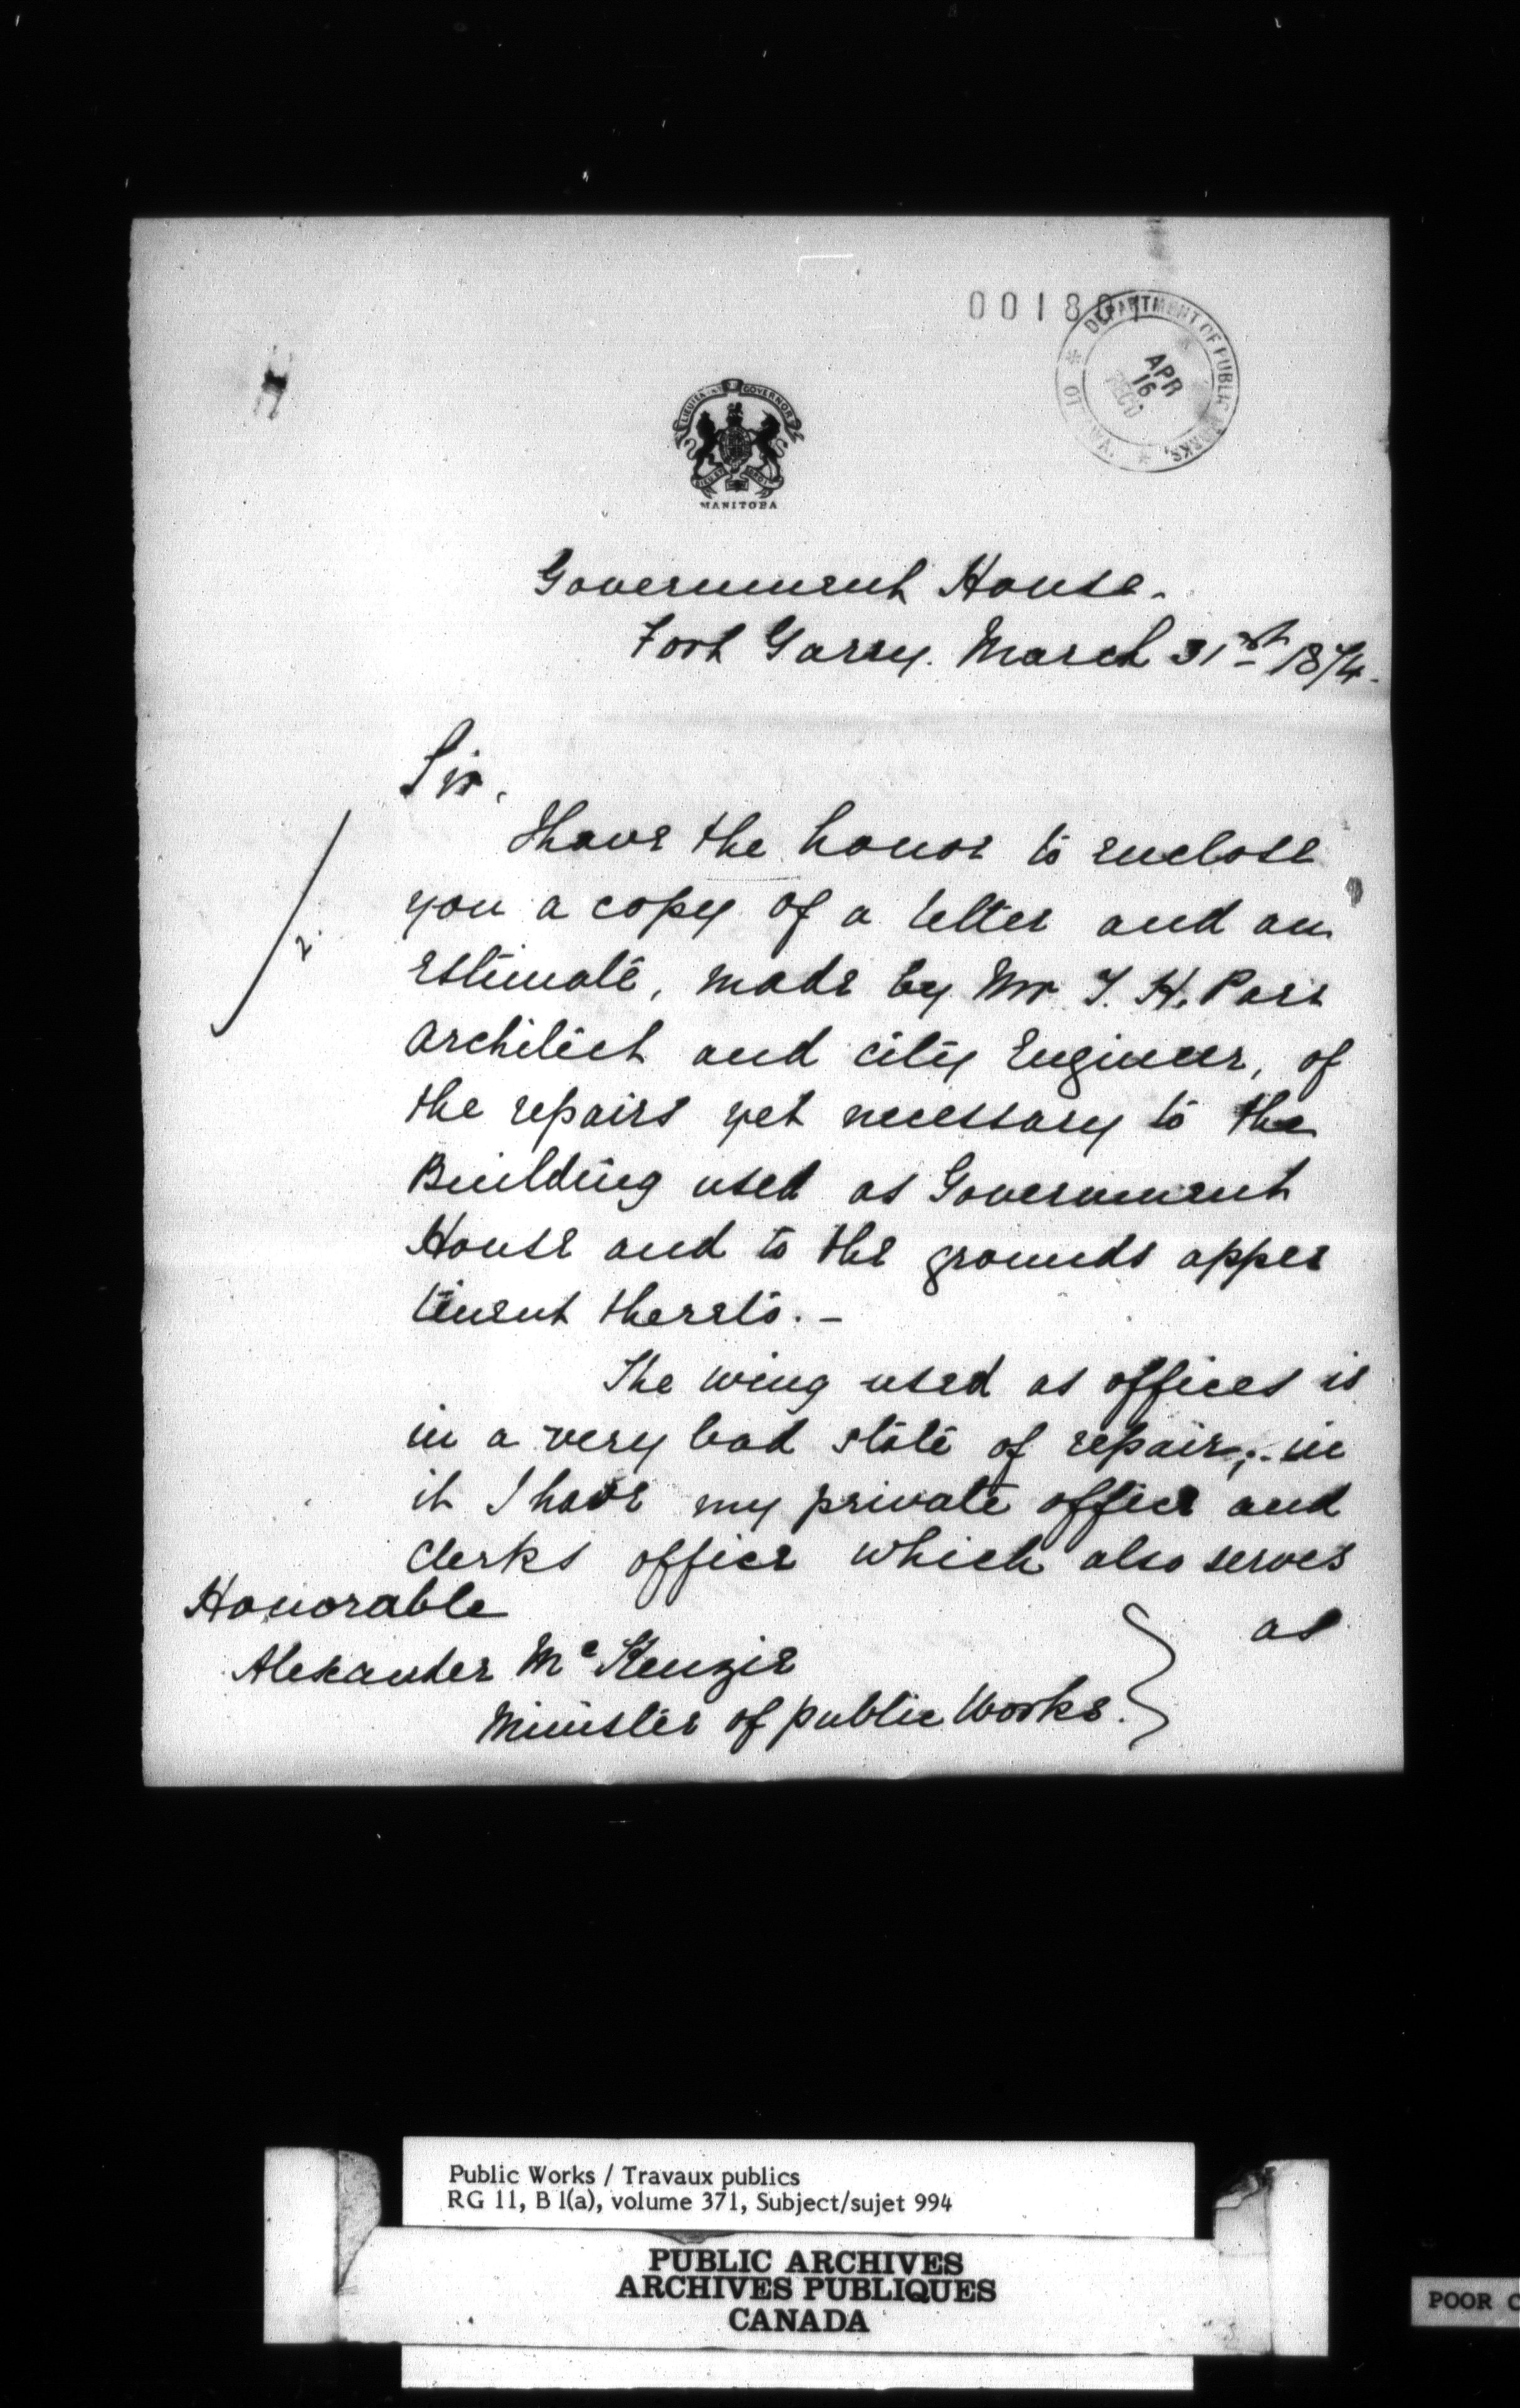 0018
DEPARTMENT OF PUBLIC WORKS.
APR
16
RECD
LIEUTENANT GOVERNOR
MANITOBA
Government House.
Fort Garry. March 31st 1874.
Sir,
I have the honor to enclose
you a copy of a letter and an
estimate, made by Mr T. H. Parr
architect and city Engineer, of
the repairs yet necessary to the
Building used as Government
House and to the grounds apper
tinent thereto. -
The wing used as offices is
in a very bad state of repair; - in
it I have my private office and
clerks office which also serves
as
Honorable
Alexander McKenzie
Minister of public Works.
2.
Public Works / Travaux publics
RG 11, B 1(a), volume 371, Subject/sujet 994
PUBLIC ARCHIVES
ARCHIVES PUBLIQUES
CANADA
POOR C